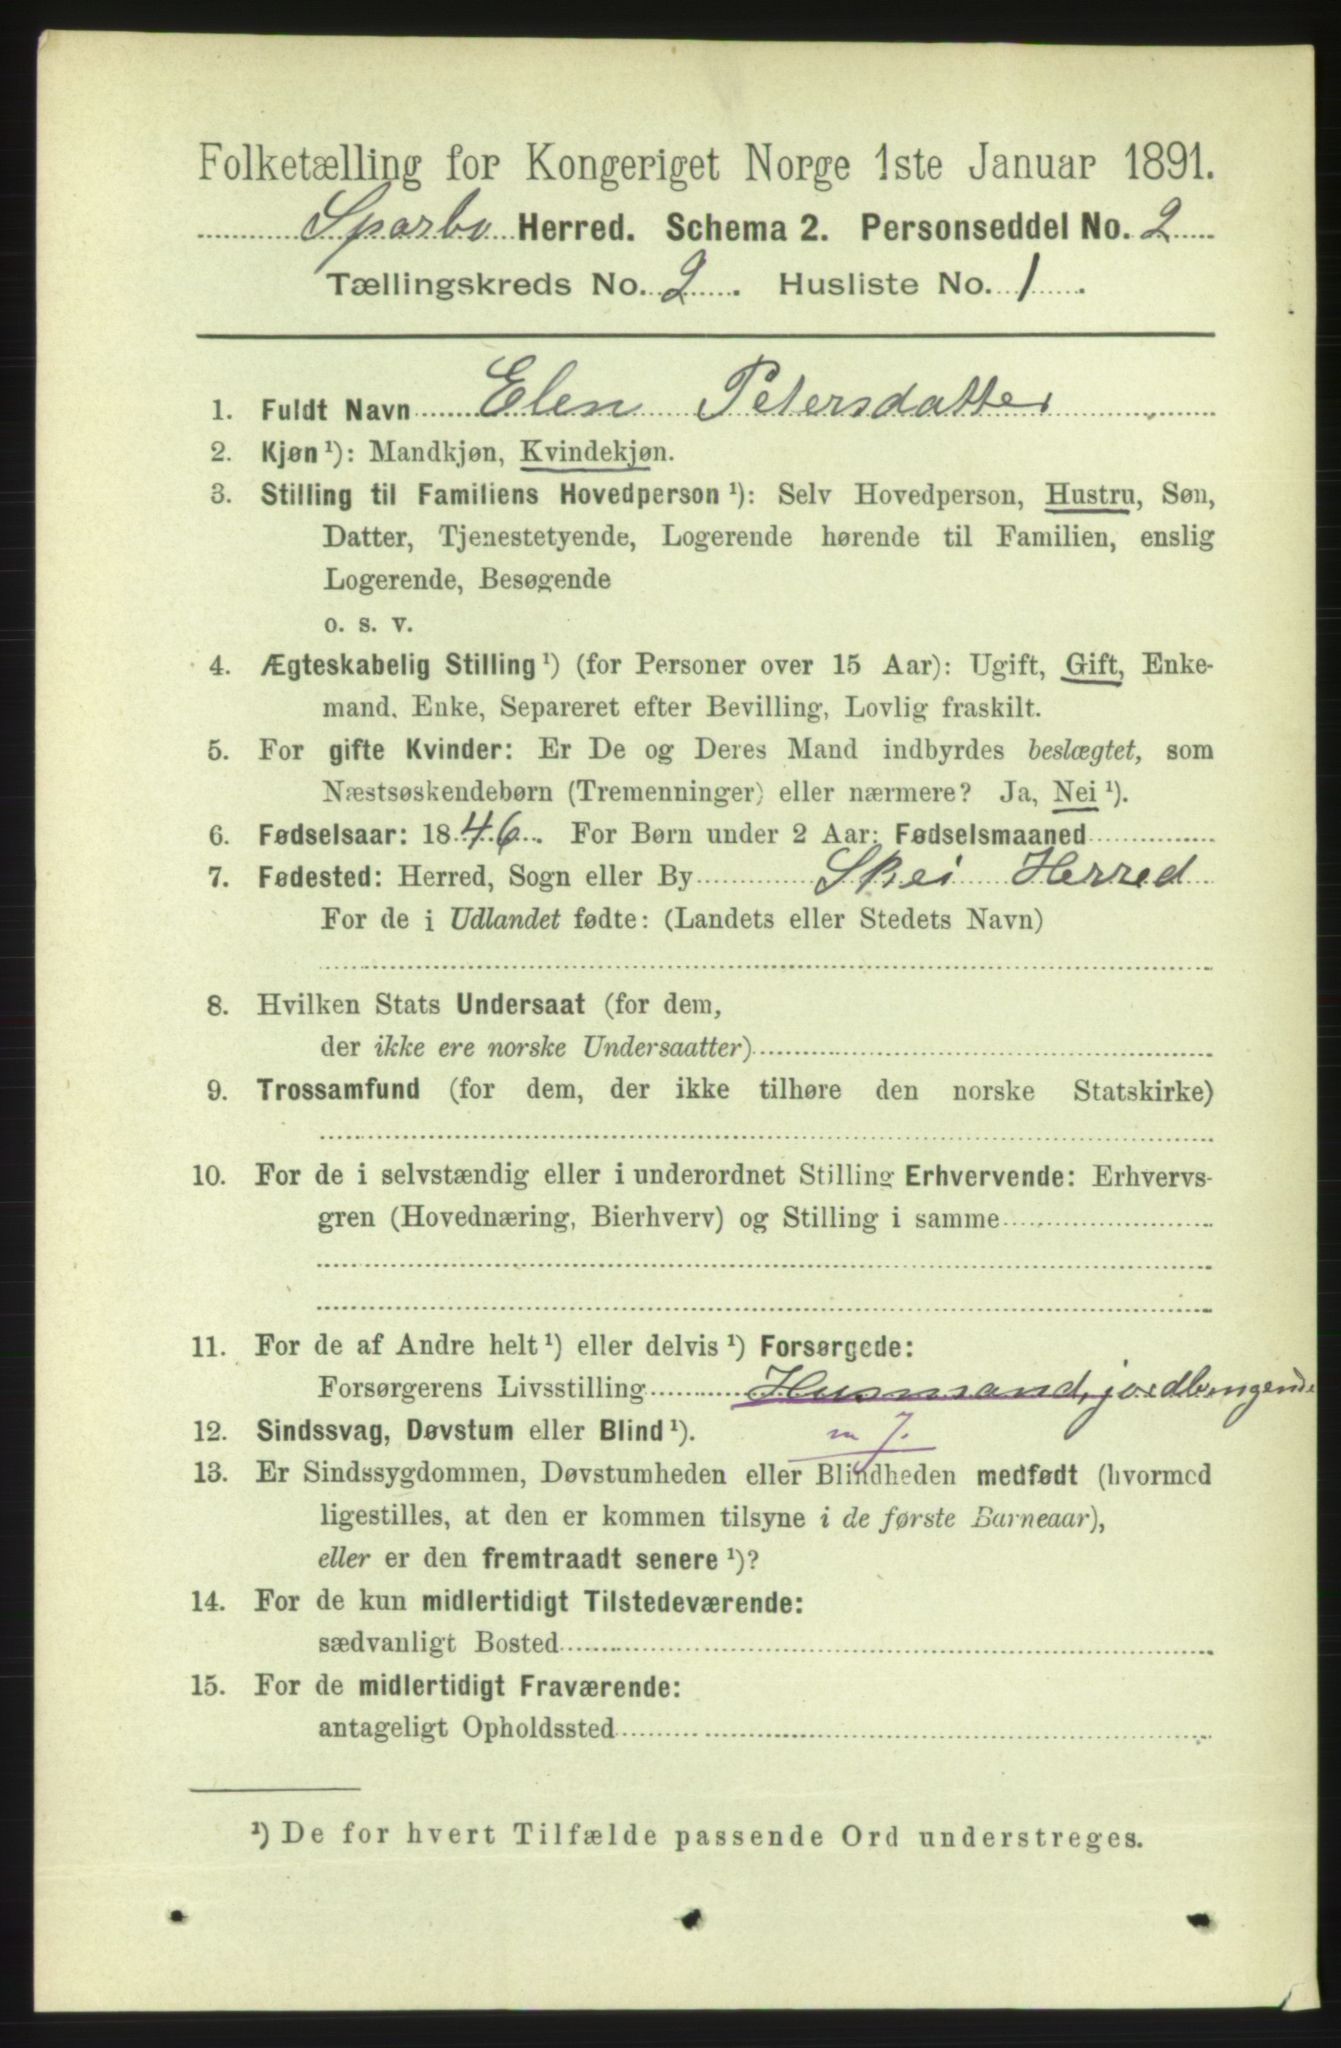 Folketælling for Kongeriget Norge 1ste Januar 1891.
Sparbu Herred. Schema 2. Personseddel No. 2
Tællingskreds No. 2. Husliste No. 1.
1. Fuldt Navn Elen Petersdatter
2. Kjøn ¹): Mandkjøn, Kvindekjøn.
3. Stilling til Familiens Hovedperson ¹): Selv Hovedperson, Hustru, Søn,
Datter, Tjenestetyende, Logerende hørende til Familien, enslig
Logerende, Besøgende
o. s. v.
4. Ægteskabelig Stilling ¹) (for Personer over 15 Aar): Ugift, Gift, Enke-
mand, Enke, Separeret efter Bevilling, Lovlig fraskilt.
5. For gifte Kvinder: Er De og Deres Mand indbyrdes beslægtet, som
Næstsøskendebørn (Tremenninger) eller nærmere? Ja, Nei ¹).
6. Fødselsaar: 1846. For Børn under 2 Aar: Fødselsmaaned
7. Fødested: Herred, Sogn eller By Skei Herred
For de i Udlandet fødte: (Landets eller Stedets Navn)
8. Hvilken Stats Undersaat (for dem,
der ikke ere norske Undersaatter)
9. Trossamfund (for dem, der ikke tilhøre den norske Statskirke)
10. For de i selvstændig eller i underordnet Stilling Erhvervende: Erhvervs-
gren (Hovednæring, Bierhverv) og Stilling i samme
11. For de af Andre helt ¹) eller delvis ¹) Forsørgede:
Forsørgerens Livsstilling Husmand, jordbrugende
m J.
12. Sindssvag, Døvstum eller Blind ¹).
13. Er Sindssygdommen, Døvstumheden eller Blindheden medfødt (hvormed
ligestilles, at den er kommen tilsyne i de første Barneaar),
eller er den fremtraadt senere ¹)?
14. For de kun midlertidigt Tilstedeværende:
sædvanligt Bosted
15. For de midlertidigt Fraværende:
antageligt Opholdssted
¹) De for hvert Tilfælde passende Ord understreges.